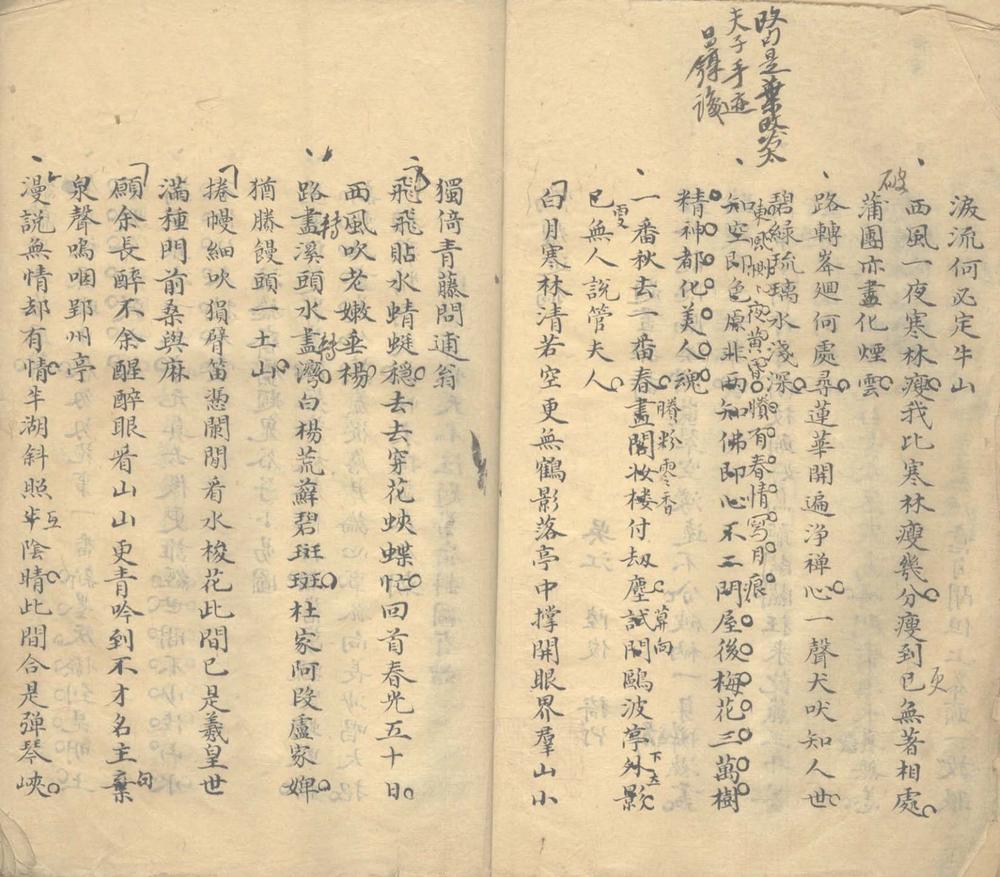 改句是葉改  
夫子手迹
昌鎛識
淚流何必定牛山
西風一夜寒林瘦我比寒林瘦幾分瘦到已無著相處
更
破
蒲團亦盡化煙雲
路轉峯廻何處尋蓮華開遍淨禪心一聲犬吠知人世
碧綠琉璃水淺深
東風 夜黃昏 有春情寫月痕
知空即色原非兩知佛即心不二門屋後梅花三萬樹
精神都化美人魂
一番秋去一番春畫閣妝樓付劫塵試問鷗波亭外影
賸粉零香
算向
下立
雪
已無人說管夫人
白月寒林清若空更無鶴影落亭中撑開眼界羣山小
獨倚青藤問逋翁
飛飛貼水蜻蜓穩去去穿花蛺蝶忙回首春光五十日
西風吹老嫩垂楊
路盡溪頭水盡灣白楊荒蘚碧斑斑杜家阿段盧家婢
轉
轉
猶勝饅頭一土山
捲幔細吹損臂笛憑闌閒看水梭花此間已是羲皇世
滿種門前桑與麻
願余長醉不余醒醉眼看山山更青吟到不才名主棄
句
泉聲嗚咽郢州亭
漫說無情却有情半湖斜照半陰晴此間合是彈琴峽
互